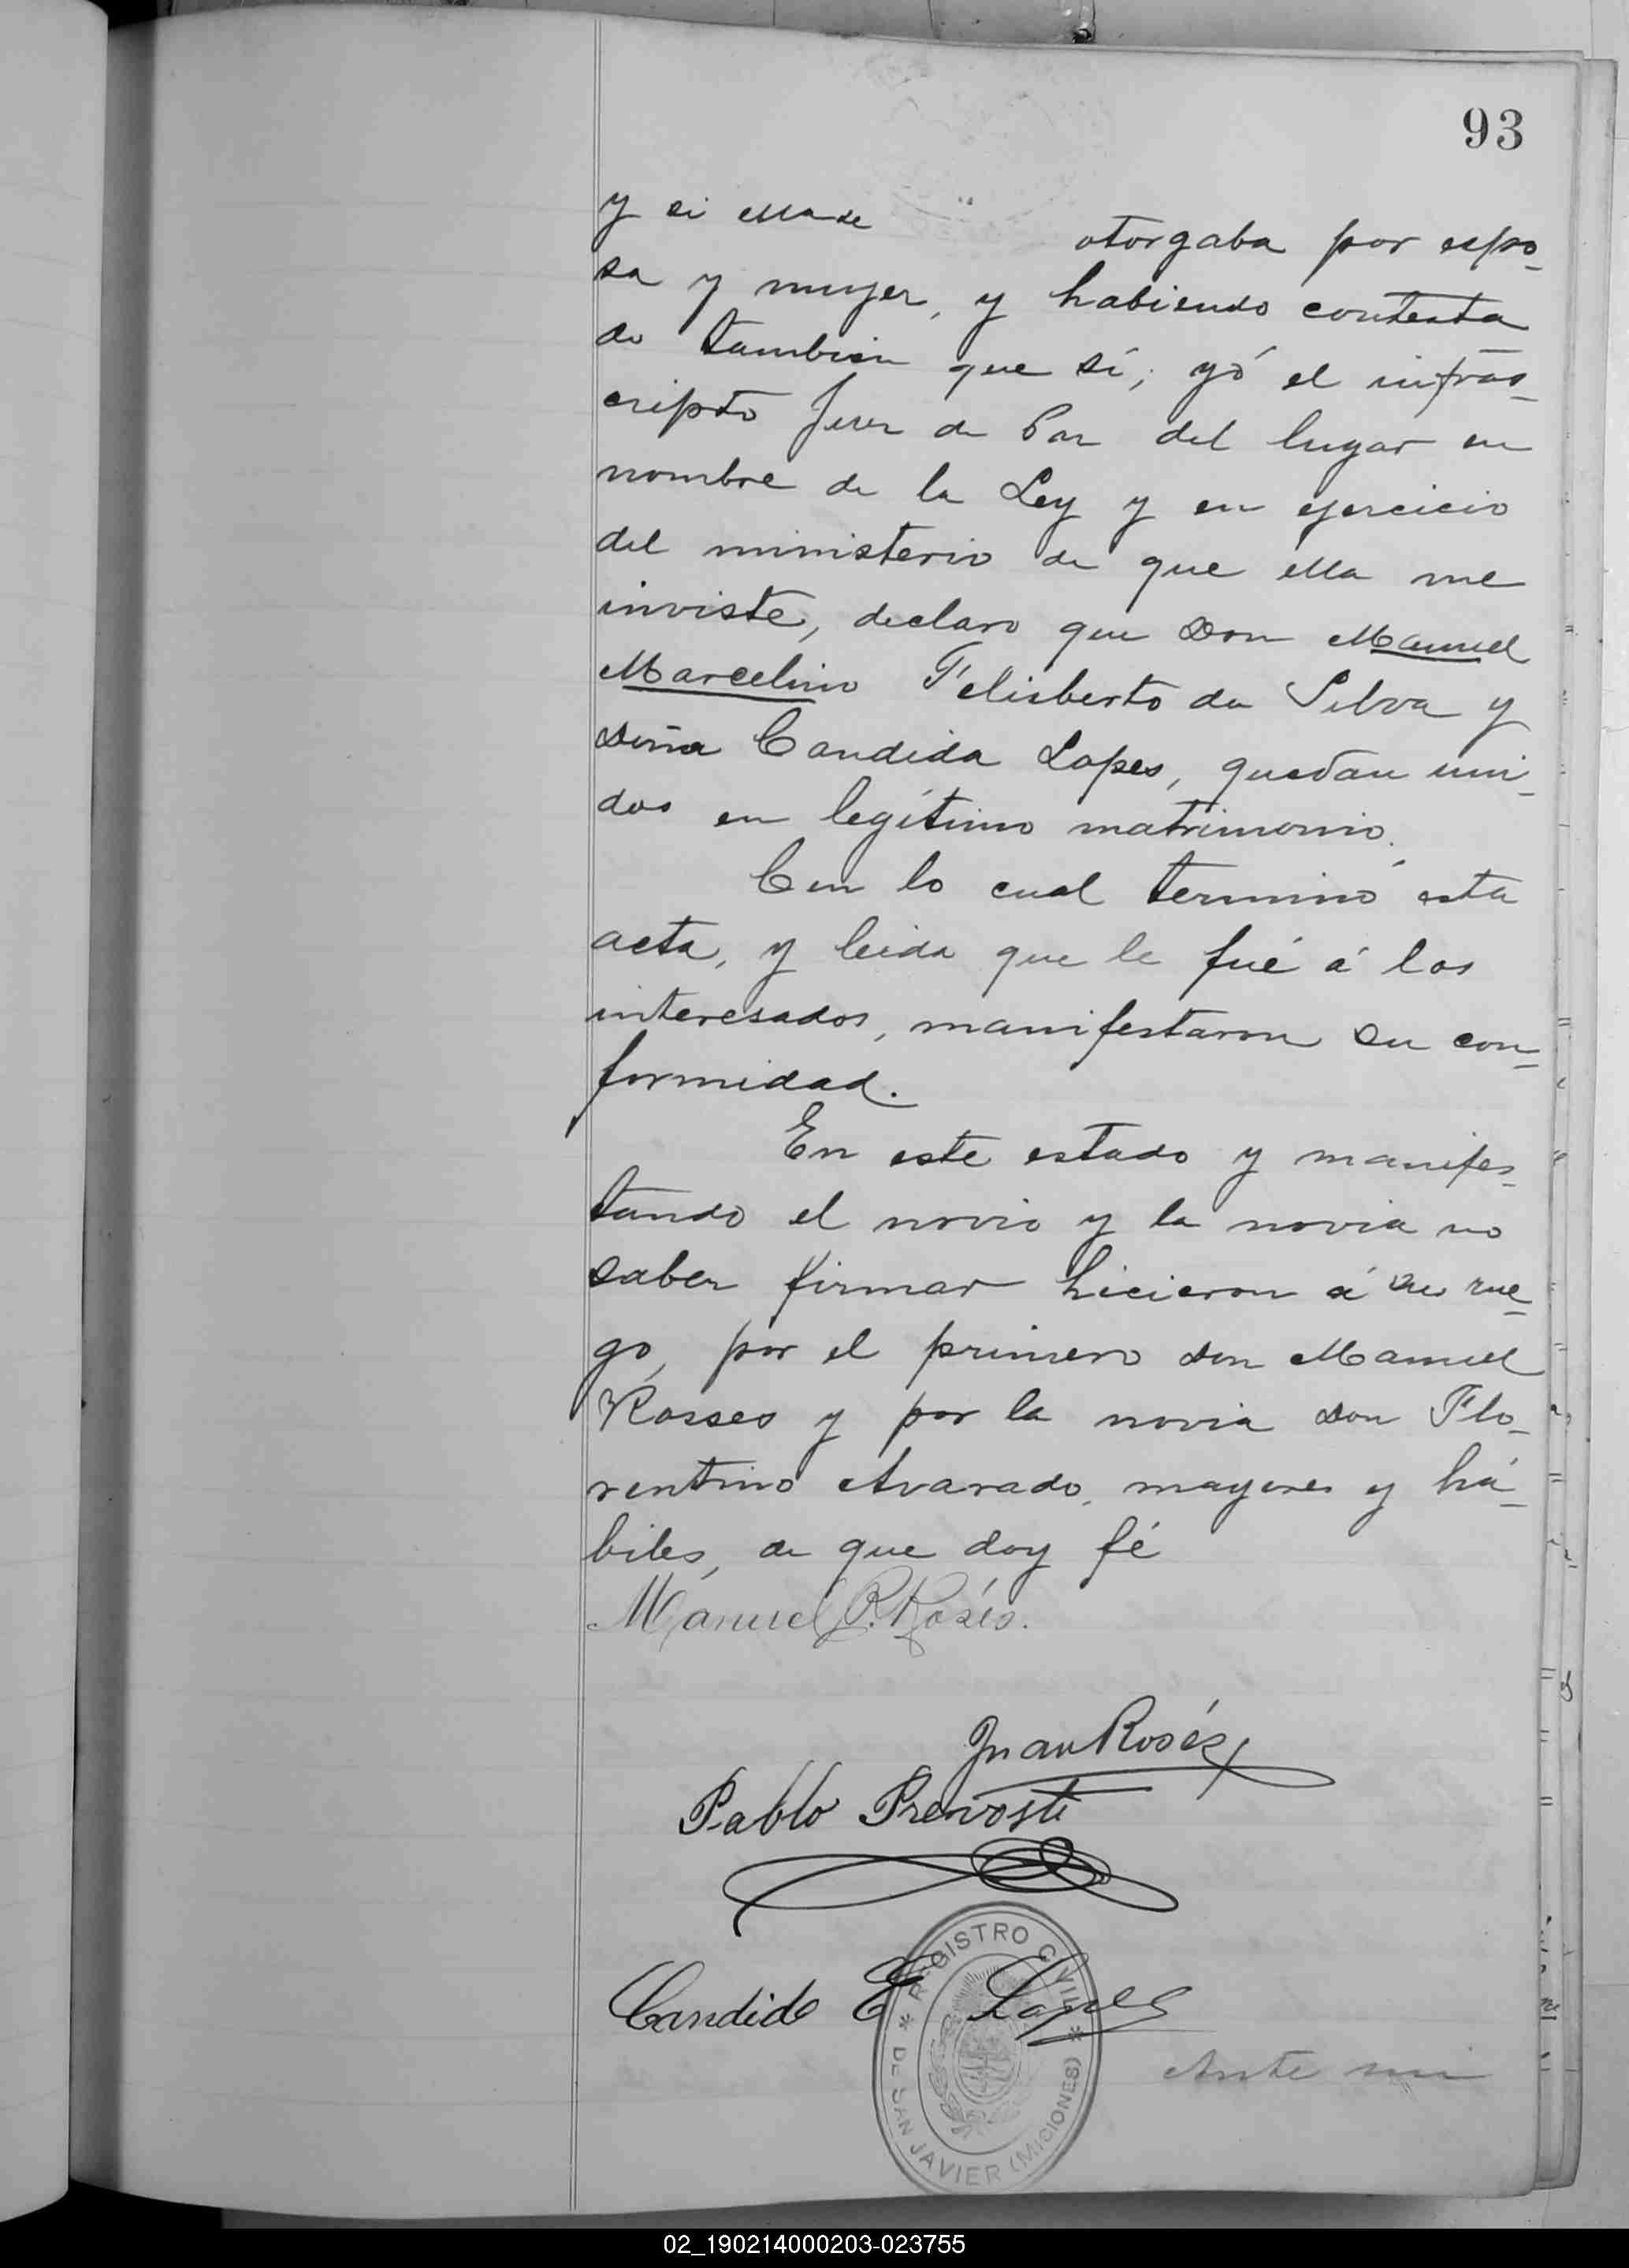 93
y si ella se otorgaba por espo-
sa y mujer, y habiendo contesta
do tambien que sí; yó el infras-
cripto Juez de Paz del lugar en
nombre de la Ley y en ejercicio
del ministerio de que ella me
inviste, declaro que Don Manuel
Marcelino Felisberto da Silva y
Doña Candida Lopes, quedan uni-
dos en legítimo matrimonio.
Con lo cual terminó esta
acta, y leida que le fué á los
interesados, manifestaron su con-
formidad.
En este estado y manifes-
tando el novio y la novia no
saber firmar hicieron á su rue-
go, por el primero don Manuel
Rosses y por la novia don Flo-
rentino Avarado, mayores y há-
biles, de que doy fé
Manuel R. Rosés.
Juan Rosés
Pablo Prevosti
Candido E Lopes
* REGISTRO CIVIL *
DE SAN JAVIER (MICIONES)
Ante mi
02_190214000203-023755